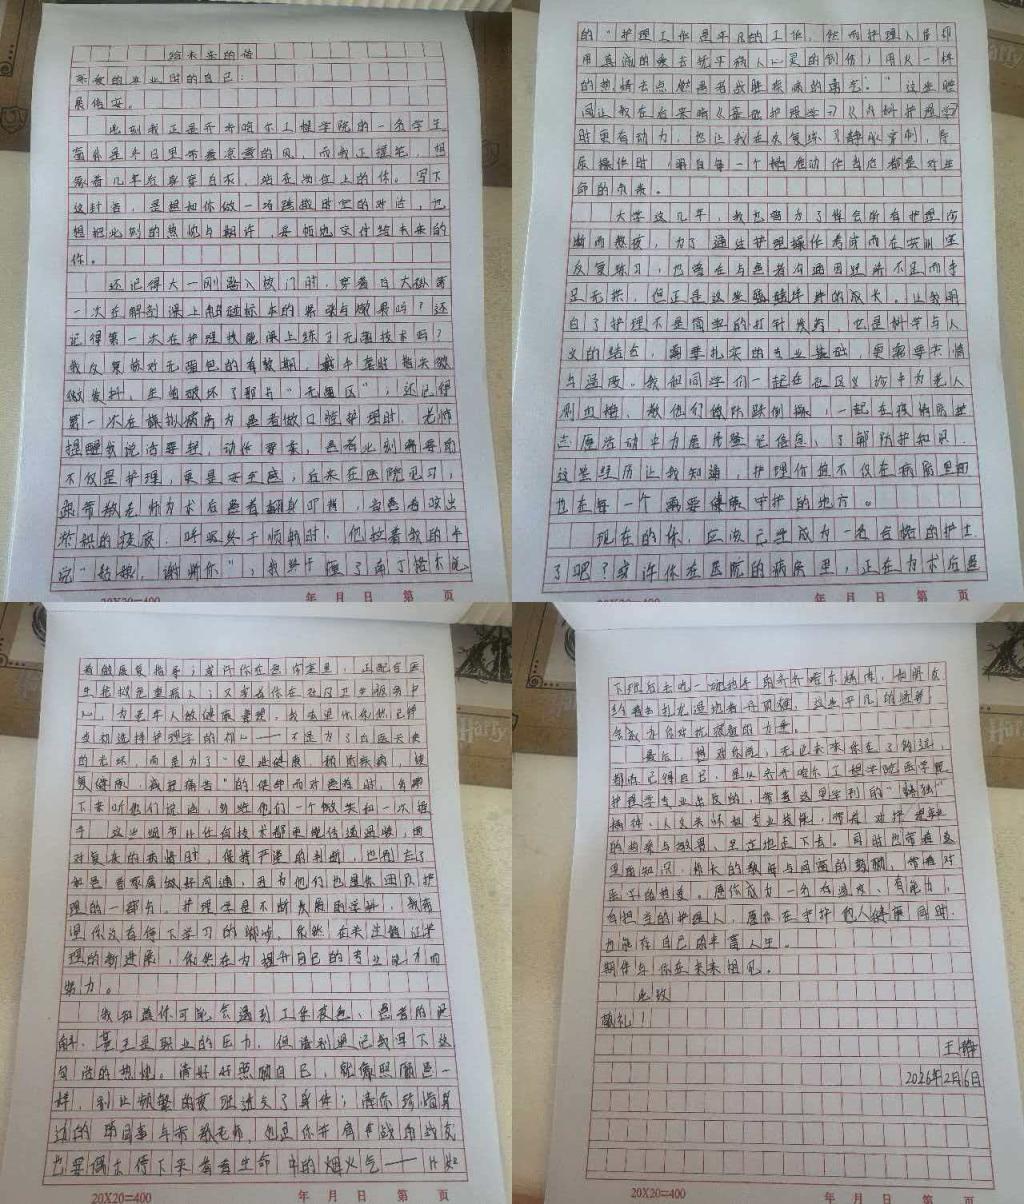 给未来的信
亲爱的毕业时的自己：
展信安。
此刻我正是齐齐哈尔工程学院的一名学生
窗外是冬日里带着凉意的风，而我正握笔，想
象着几年后身穿白衣，站在岗位上的你。写下
这封信，是想和你做一场跨越时空的对话，也
想把此刻的热忱与期许，妥帖地交付给未来的
你。
还记得大一刚踏入校门时，穿着白大褂第
一次在解剖课上触碰标本的紧张与敬畏吗？还
记得第一次在护理技能课上练习无菌技术吗？
我反复核对无菌包的有效期，戴手套时指尖微
微发抖，生怕破坏了那片"无菌区"；还记得
第一次在模拟病房为患者做口腔护理时，老师
提醒我说话要轻，动作要柔，患者此刻需要的
不仅是护理，更是安全感，后来在医院见习，
跟带教老师为术后患者翻身叩背，当患者咳出
淤积的痰液，呼吸终于顺畅时，他拉着我的手
说"姑娘，谢谢你"，我终于懂了南丁格尔说
20X20=400 年 月 日 第 页
的"护理工作是平凡的工作，然而护理人员却
用真诚的爱去抚平病人心灵的创伤，用火一样
的热情去点燃患者战胜疾病的勇气。"这些瞬
间让我在后来啃《基础护理学》《内科护理学》
时更有动力，也让我在反复练习静脉穿刺、导
尿操作时，明白每一个标准动作背后都是对生
命的负责。
大学这几年，我也曾为了背会所有护理诊
断而熬夜，为了通过护理操作考试而在实训室
反复练习，也曾在与患者沟通因经验不足而手
足无措，但正是这些点滴的成长，让我明
白了护理不是简单的打针发药，它是科学与人
文的结合，需要扎实的专业基础，更需要共情
与温度。我和同学们一起在社区义诊中为老人
测血糖、教他们做防跌倒操，一起在疫情防控
志愿活动中为居民登记信息、了解防护知识，
这些经历让我知道，护理价值不仅在病房里面
也在每一个需要健康守护的地方。
现在的你，应该已经成为一名合格的护士
了吧？或许你在医院的病房里，正在为术后患
20X20=400 年 月 日 第 页
者做康复指导；或许你在急诊室里，正配合医
生抢救危重病人；又或者你在社区卫生服务中
心，为老年人做健康管理。我希望你依然记得
当初选择护理学的初心——不是为了白衣天使
的光环，而是为了"促进健康，预防疾病，恢
复健康，减轻痛苦"的使命而对患者时，会蹲
下来听他们说话，多给他们一个微笑和一次握
手，这些细节比任何技术都更能传递温暖；面
对复杂的病情时，保持严谨的判断，也别忘了
和患者家属做好沟通，因为他们也是你团队护
理的一部分。护理学是不断发展的学科，
你没有停下学习的脚步，依然在关注循证护
理的新进展，依然在为提升自己的专业能力而
努力。
我知道你可能会遇到工作疲惫、患者的误
解，甚至是职业的压力，但请别忘记我写下这
句话的热忱。请好好照顾自己，就像照顾患者一
样，别让频繁的夜班透支了身体；请你珍惜身
边的同事与带教老师，他是你并肩作战的战友
也要偶尔停下来看看生命中的烟火气——比如
20X20=400 年 月 日 第 页
下班后去吃一碗热乎的齐齐哈尔烤肉，和朋友
约着去扎龙湿地看丹顶鹤，这些平凡的温暖，
会成为你对抗疲惫的力量。
最后，想对你说，无论未来你走了多远，
都要记得自己，是从齐齐哈尔工程学院医学院
护理学专业出发的，带着这里学到的
精神、人文关怀和专业技能，带着对护理事业
的热爱与敬畏，坚定地走下去。同时也带着这
里的知识，师长的教导与同窗的鼓励，带着对
医学的热爱。愿你成为一名有温度、有能力，
有担当的护理人，愿你在守护他人健康同时，
也能有自己的丰富人生。
期待与你在未来相见。
此致
敬礼！
王静
2026年2月6日
20X20=400 年 月 日 第 页